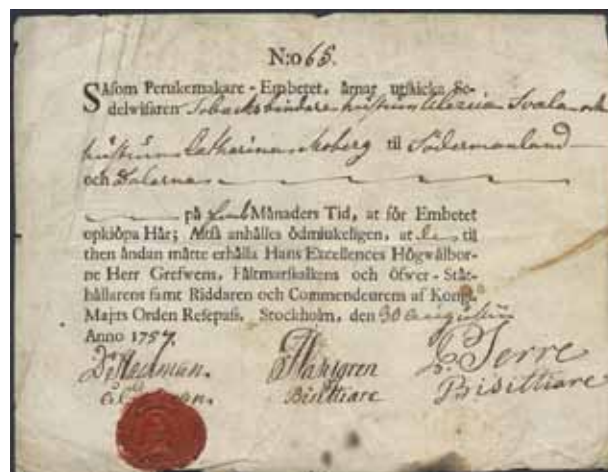 N:o 65.
Såsom Perukemakare-Embetet, ärnar utskicka Se-
delwisaren Tobacksbindare hustrun Svala och
hustrun Catharina Moberg til Södermanland
och Dalarna
på Månaders Tid, at för Embetet
opkiöpa Hår; Altså anhålles ödmiukeligen, at de til
then ändan måtte erhålla Hans Excellences Högwälbor-
ne Herr Grefwens, Fältmarskalkens och Öfwer-Ståt-
hållarens samt Riddaren och Commendeurens af Kongl.
Majts Orden Resepass. Stockholm, den 30 augustii
Anno 1757.
Hahlgren D. Serre
Bisittiare Bisittiare